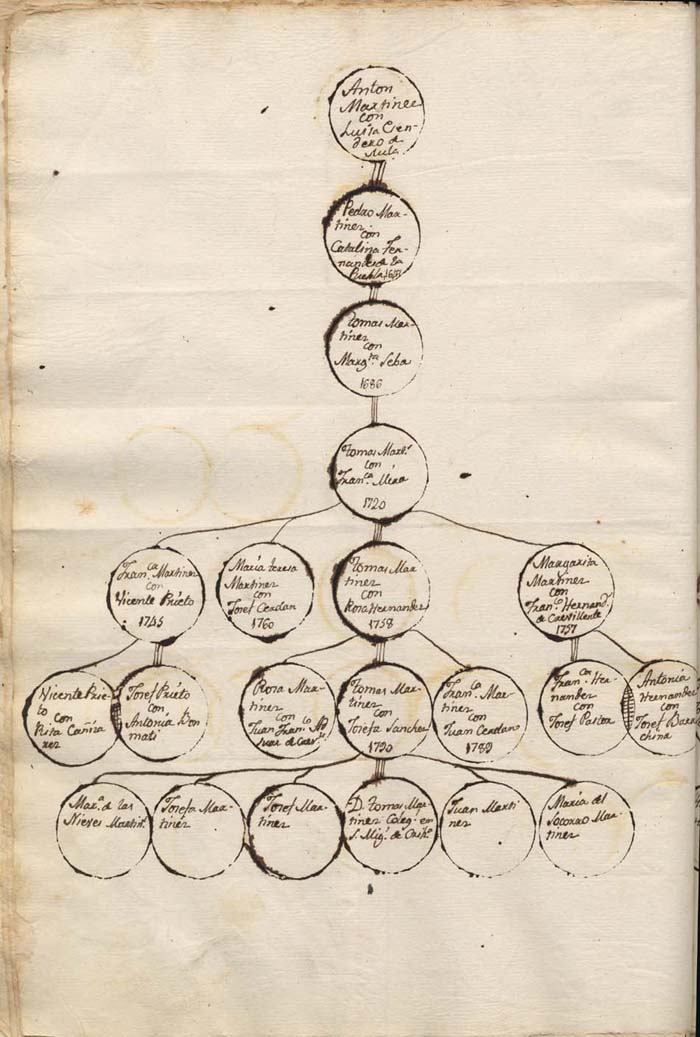 Anton
Martinez
con
Luisa Cien-
dero de
Mula
Pedro Mar-
tinez
con
Catalina Fer-
nandez de la
Puebla
Tomas Mar-
tinez
con
Marg.ta Seba
1686
Tomas Mart.z
con
Fran.ca Mira
1720
Fran.ca Martinez
con
Vicente Prieto
1745
Maria teresa
Martinez
con
Josef Cerdan
1760
Tomas Mar-
tinez
con
Rosa Hernandez
1758
Margarita
Martinez
con
Fran.co Hernand.
de Crevillente
1757
Vicente Prie-
to con
Rita Cañiza
rez
Josef Prieto
con
Antonia Ron
mati
Rosa Mar-
tinez
con
Juan Fran.co
Tomas Mar-
tinez
con
Josefa Sanchez
1790
Fran.co Mar-
tinez
con
Juan Cerdan
1789
Fran.ca Her-
nandez
con
Josef Pastor
Antonia
Hernandez
con
Josef Barra
china
Mar.a de las
Nieves Martin.
Josefa Mar-
tinez
Josef Mar-
tinez
D. Tomas Mar-
tinez Coleg.l en
S. Mig.l de Orih.a
Juan Marti
nez
Maria del
Socorro Mar-
tinez